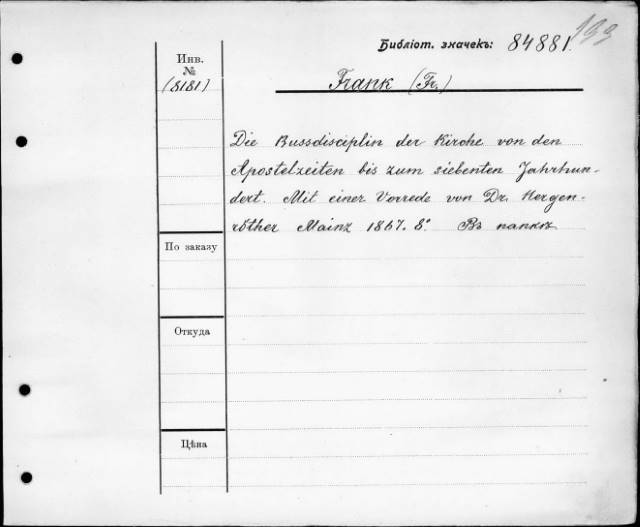 Библіот. значекъ: 84881.
193
Инв.
№
(8181)
Frank (Fr.)
Die Bussdisciplin der Kirche von den
Apostelzeiten bis zum siebenten Jahrhun-
dert. Mit einer Vorrede von Dr. Hergen-
röther Mainz 1867. 8° Въ папкѣ
По заказу
Откуда
Цѣна